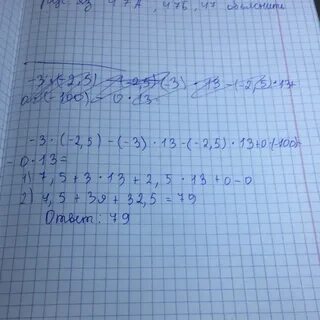 47А, 47Б, 47 объяснить
-3·(-2,5) - (-3) · 13 - (-2,5) · 13 +
0·(-100) - 0·13
-3 · (-2,5) - (-3) · 13 - (-2,5) · 13 + 0·(-100)-
- 0·13 =
1) 7,5 + 3 · 13 + 2,5 · 13 + 0 - 0
2) 7,5 + 39 + 32,5 = 79
Ответ: 79